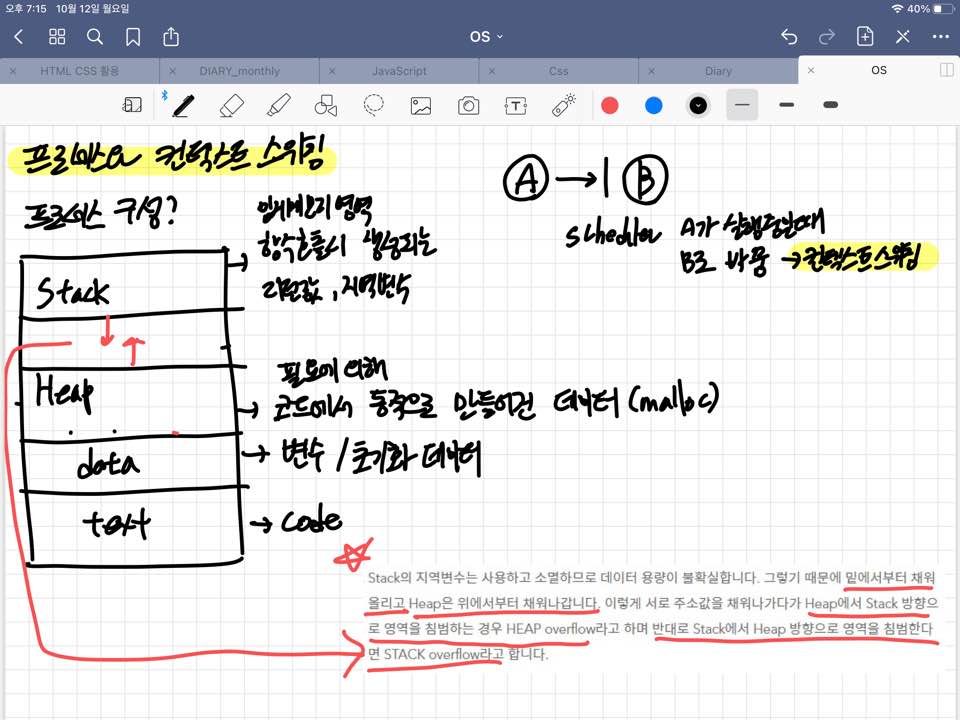 오후 7:15 10월 12일 월요일
40%
OS
HTML CSS 활용
DIARY_monthly
JavaScript
Css
Diary
OS
프로세스와 컨텍스트 스위칭
프로세스 구성?
Stack
임시메모리영역
함수호출시 생성되는
리턴값, 지역변수
Heap
필요에 의해
코드에서 동적으로 만들어진 데이터 (malloc)
data
변수 / 초기화 데이터
text
code
A
B
A가 실행중일때
B로 바꿈 → 컨텍스트 스위칭
Stack의 지역변수는 사용하고 소멸하므로 데이터 용량이 불확실합니다. 그렇기 때문에 밑에서부터 채워
올리고 Heap은 위에서부터 채워나갑니다. 이렇게 서로 주소값을 채워나가다가 Heap에서 Stack 방향으
로 영역을 침범하는 경우 HEAP overflow라고 하며 반대로 Stack에서 Heap 방향으로 영역을 침범한다
면 STACK overflow라고 합니다.